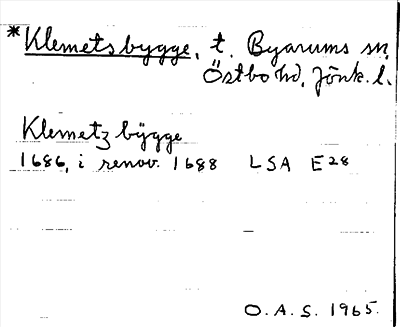 *Klemetsbygge, t. Byarums sn,
Östbo hd, Jönk. l.
Klemetz bÿgge
1686, i renov. 1688 LSA E28
O.A.S. 1965.